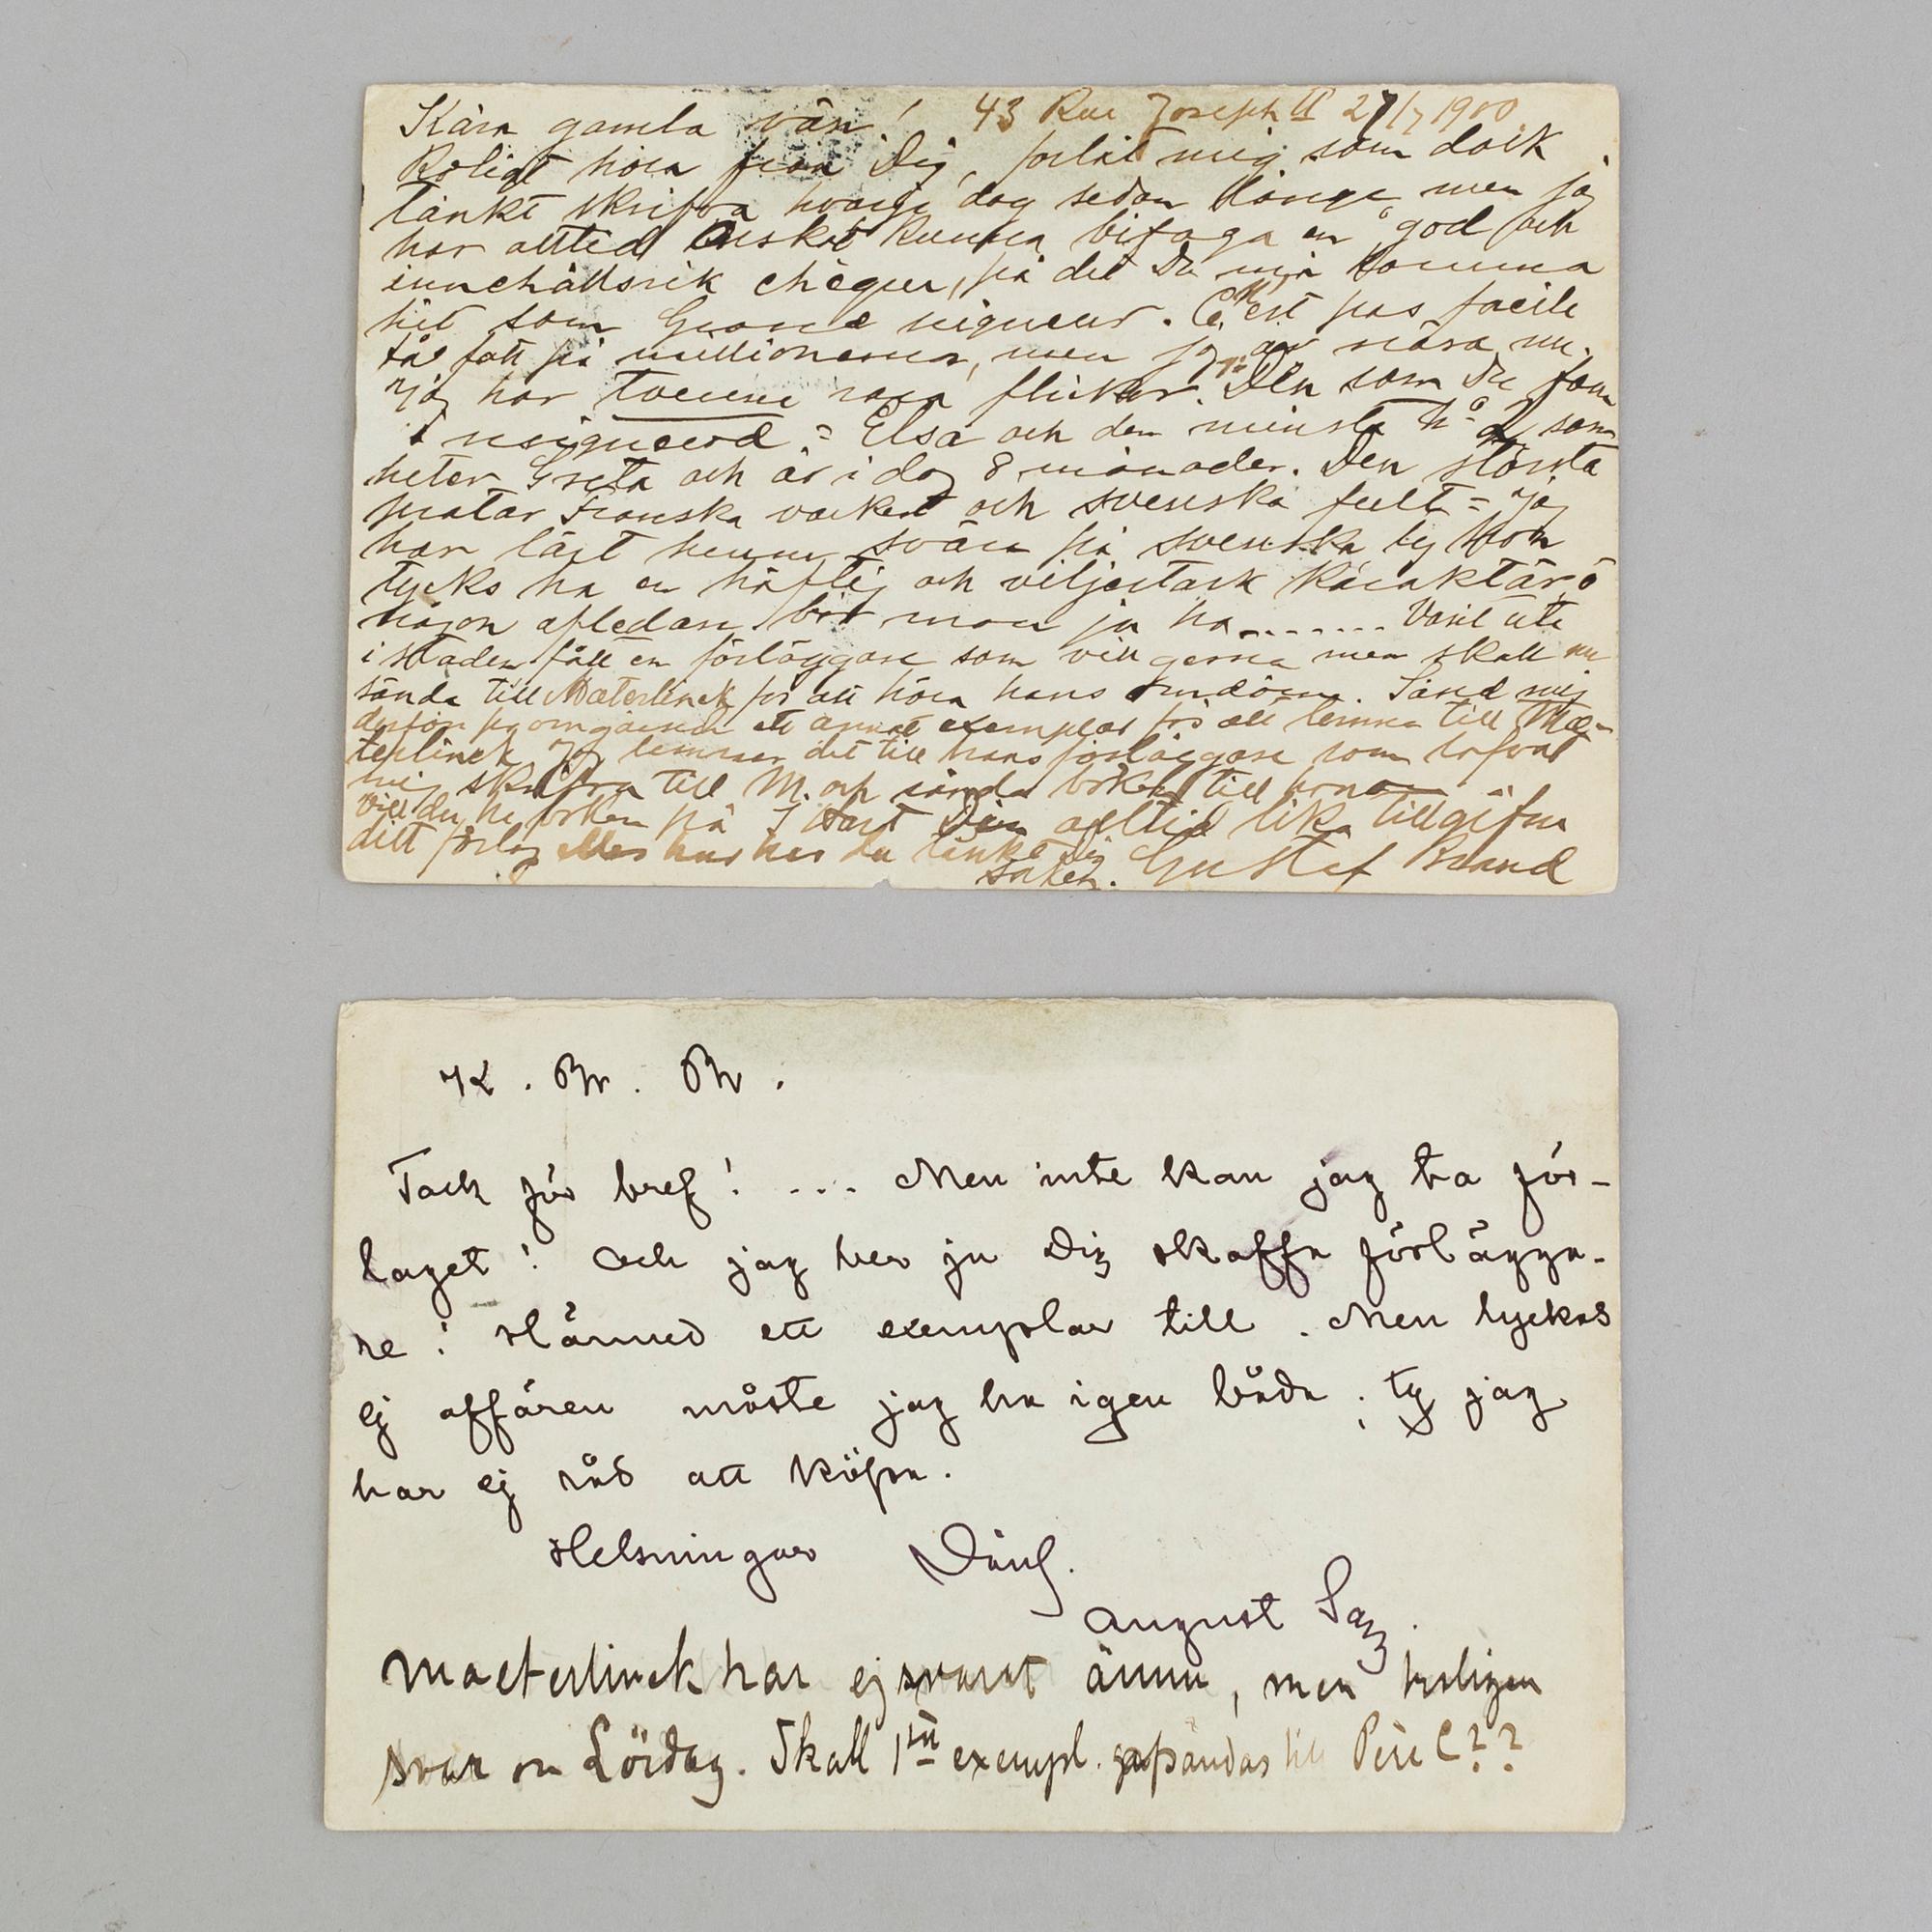 Kära gamla vän! 43 Rue Joseph II 27/7 1900
Roligt höra från Dig, förlåt mig som dock
tänkt skrifva hvarje dag sedan länge, men jag
har alltid önskat kunna bifoga en god och
innehållsrik chèque, på det Du må komma
hit som Grand seigneur. C'est pas facile
få fatt på millionerna, men jag är nära nu.
Jag har tvenne rara flickor. Den som Du
= Elsa och den minsta som
heter Greta och är i dag 8 månader. Den största
pratar Franska vackert och svenska fult = jag
har lärt henne svära på svenska ty hon
tycks ha en häftig och viljestark karaktär o
någon afledare bör man ju ha........ Varit ute
i staden fått en förläggare som vill gerna men skall nu
sända till Mæterlinck för att höra hans omdöme. Sänd mig
derför pr omgående ett annat exemplar för att lemna till Mæ-
terlinck Jag lemnar det till hans förläggare som lofvat
mig skrifva till M. och sända boken till honom
Vill du ha boken på Din alltid lika tillgifne
ditt förlag eller hur har du tänkt Dig Gustaf Brand
saken.
K. Br. Br.
Tack för bref! ... Men inte kan jag ta för-
laget! Och jag ber ju Dig skaffa förlägga-
re! Härmed ett exemplar till. Men lyckas
ej affären måste jag ha igen båda; ty jag
har ej råd att köpa.
Helsningar Din
August Sg.
Maeterlinck har ej svarat ännu, men troligen
svar om Lördag. Skall 1sta exempl. till Père C??